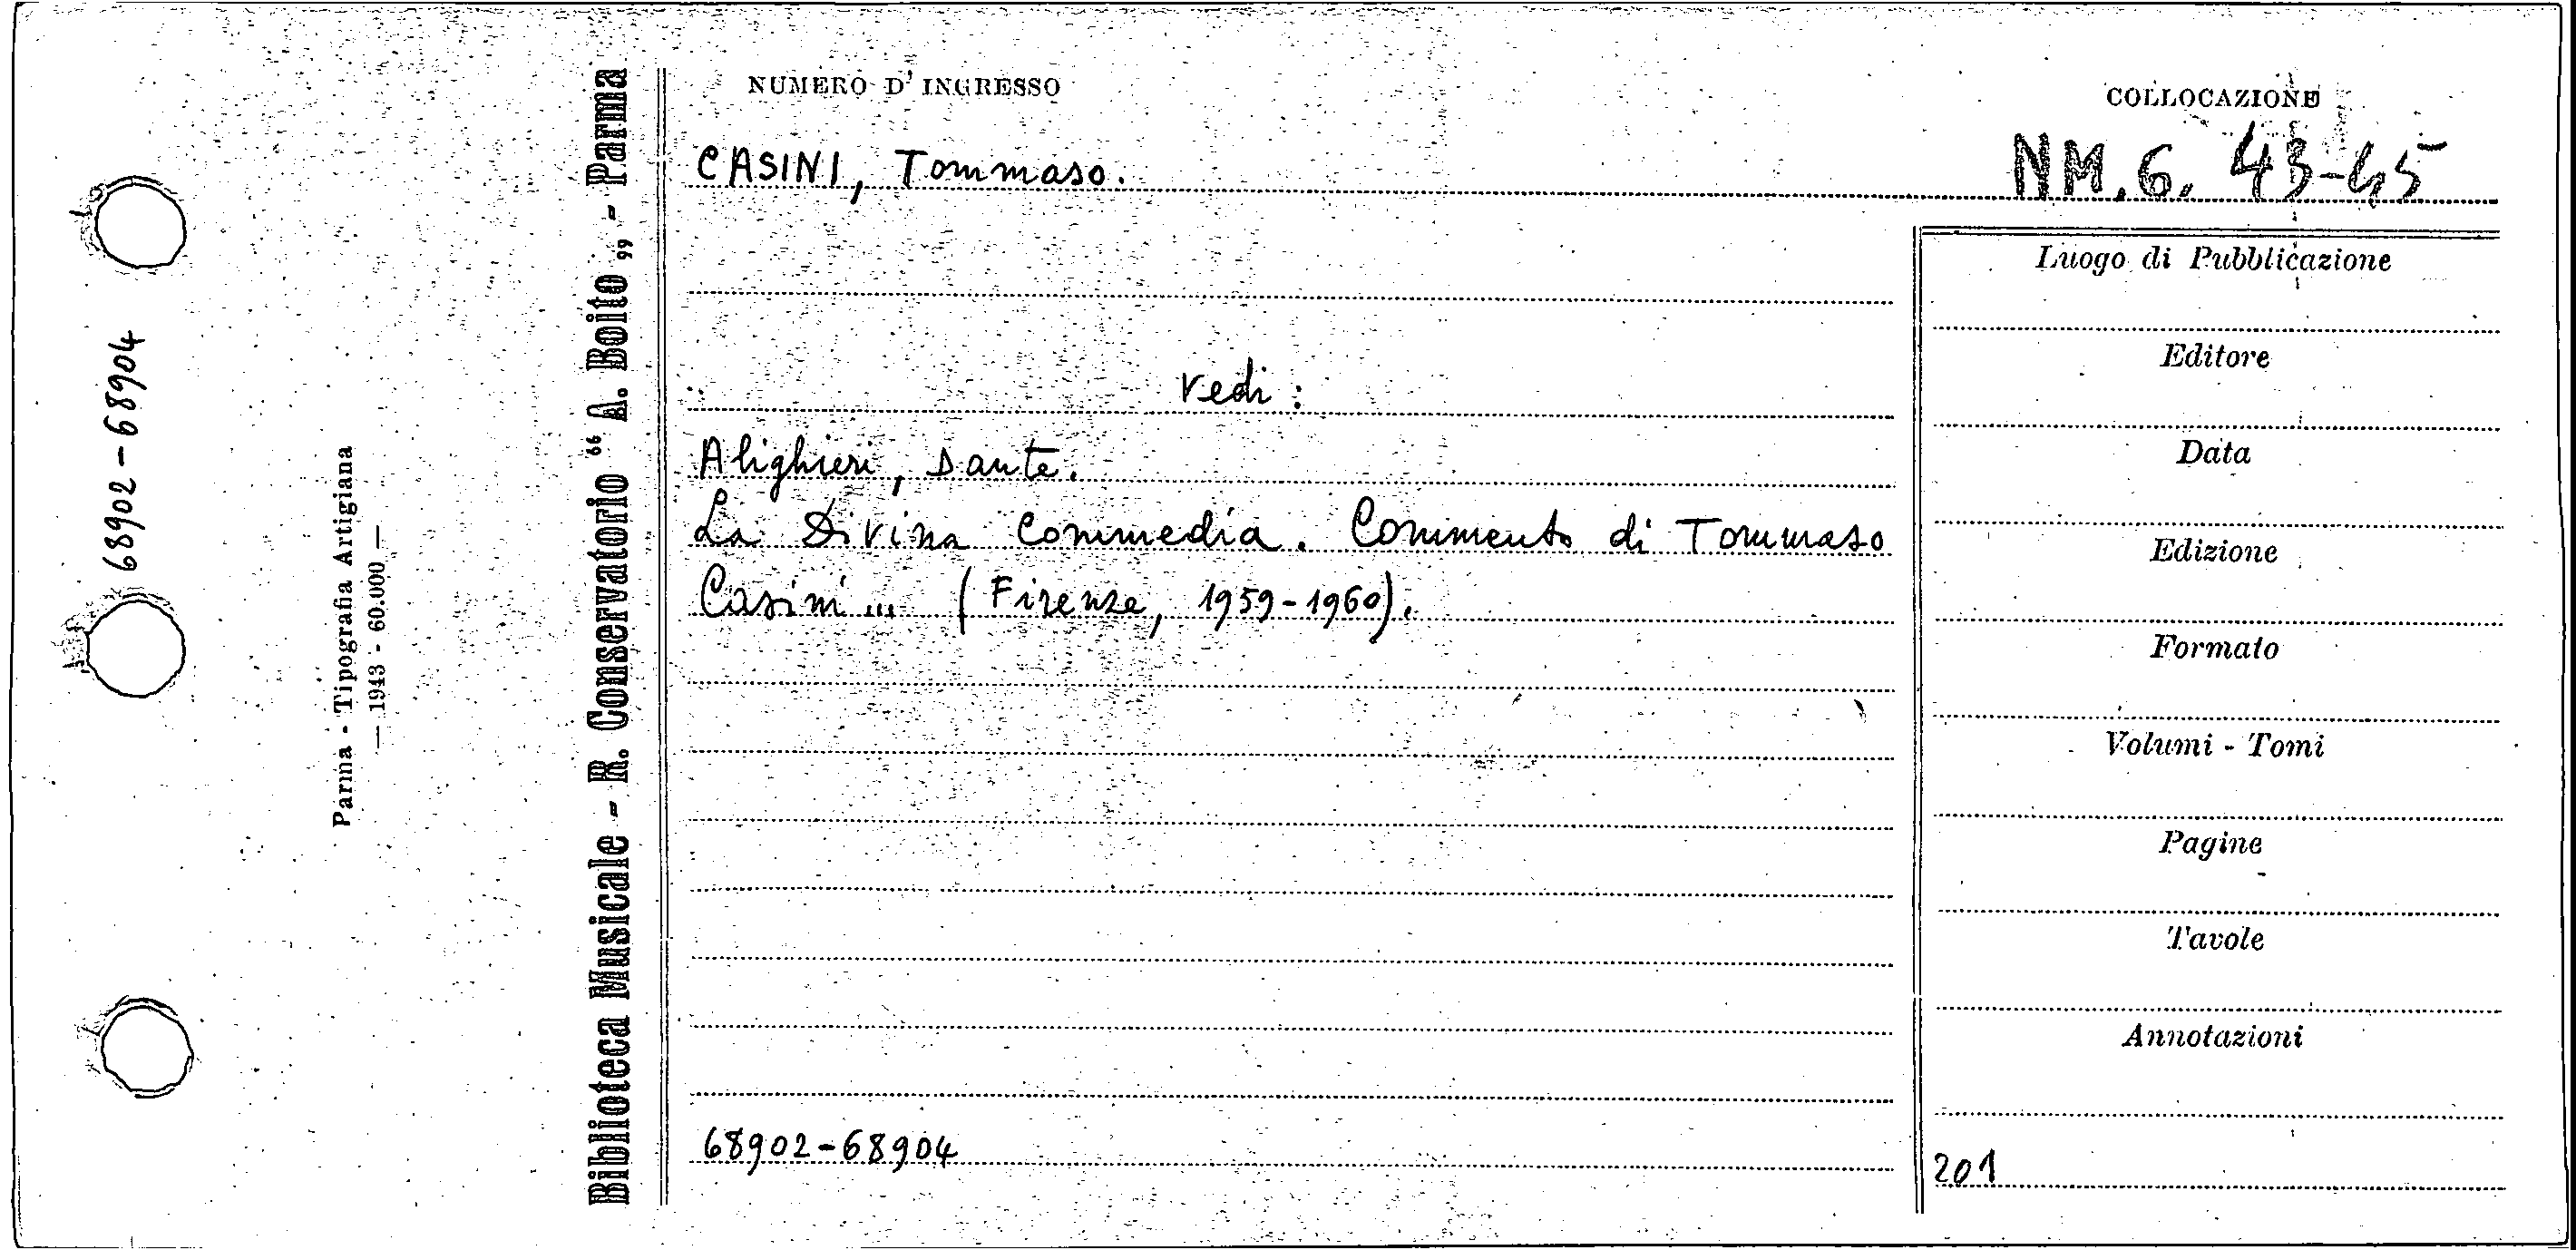 68902-68904
Parma - Tipografia Artigiana
— 1943 - 60.000 —
Biblioteca Musicale - R. Conservatorio “ A. Boito „ - Parma
NUMERO D' INGRESSO
COLLOCAZIONE
CASINI, Tommaso.
NM.6. 43-45
vedi:
Alighieri, Dante.
La Divina Commedia. Commento di Tommaso
Casini... (Firenze, 1959-1960).
68902-68904
Luogo di Pubblicazione
Editore
Data
Edizione
Formato
Volumi - Tomi
Pagine
Tavole
Annotazioni
201